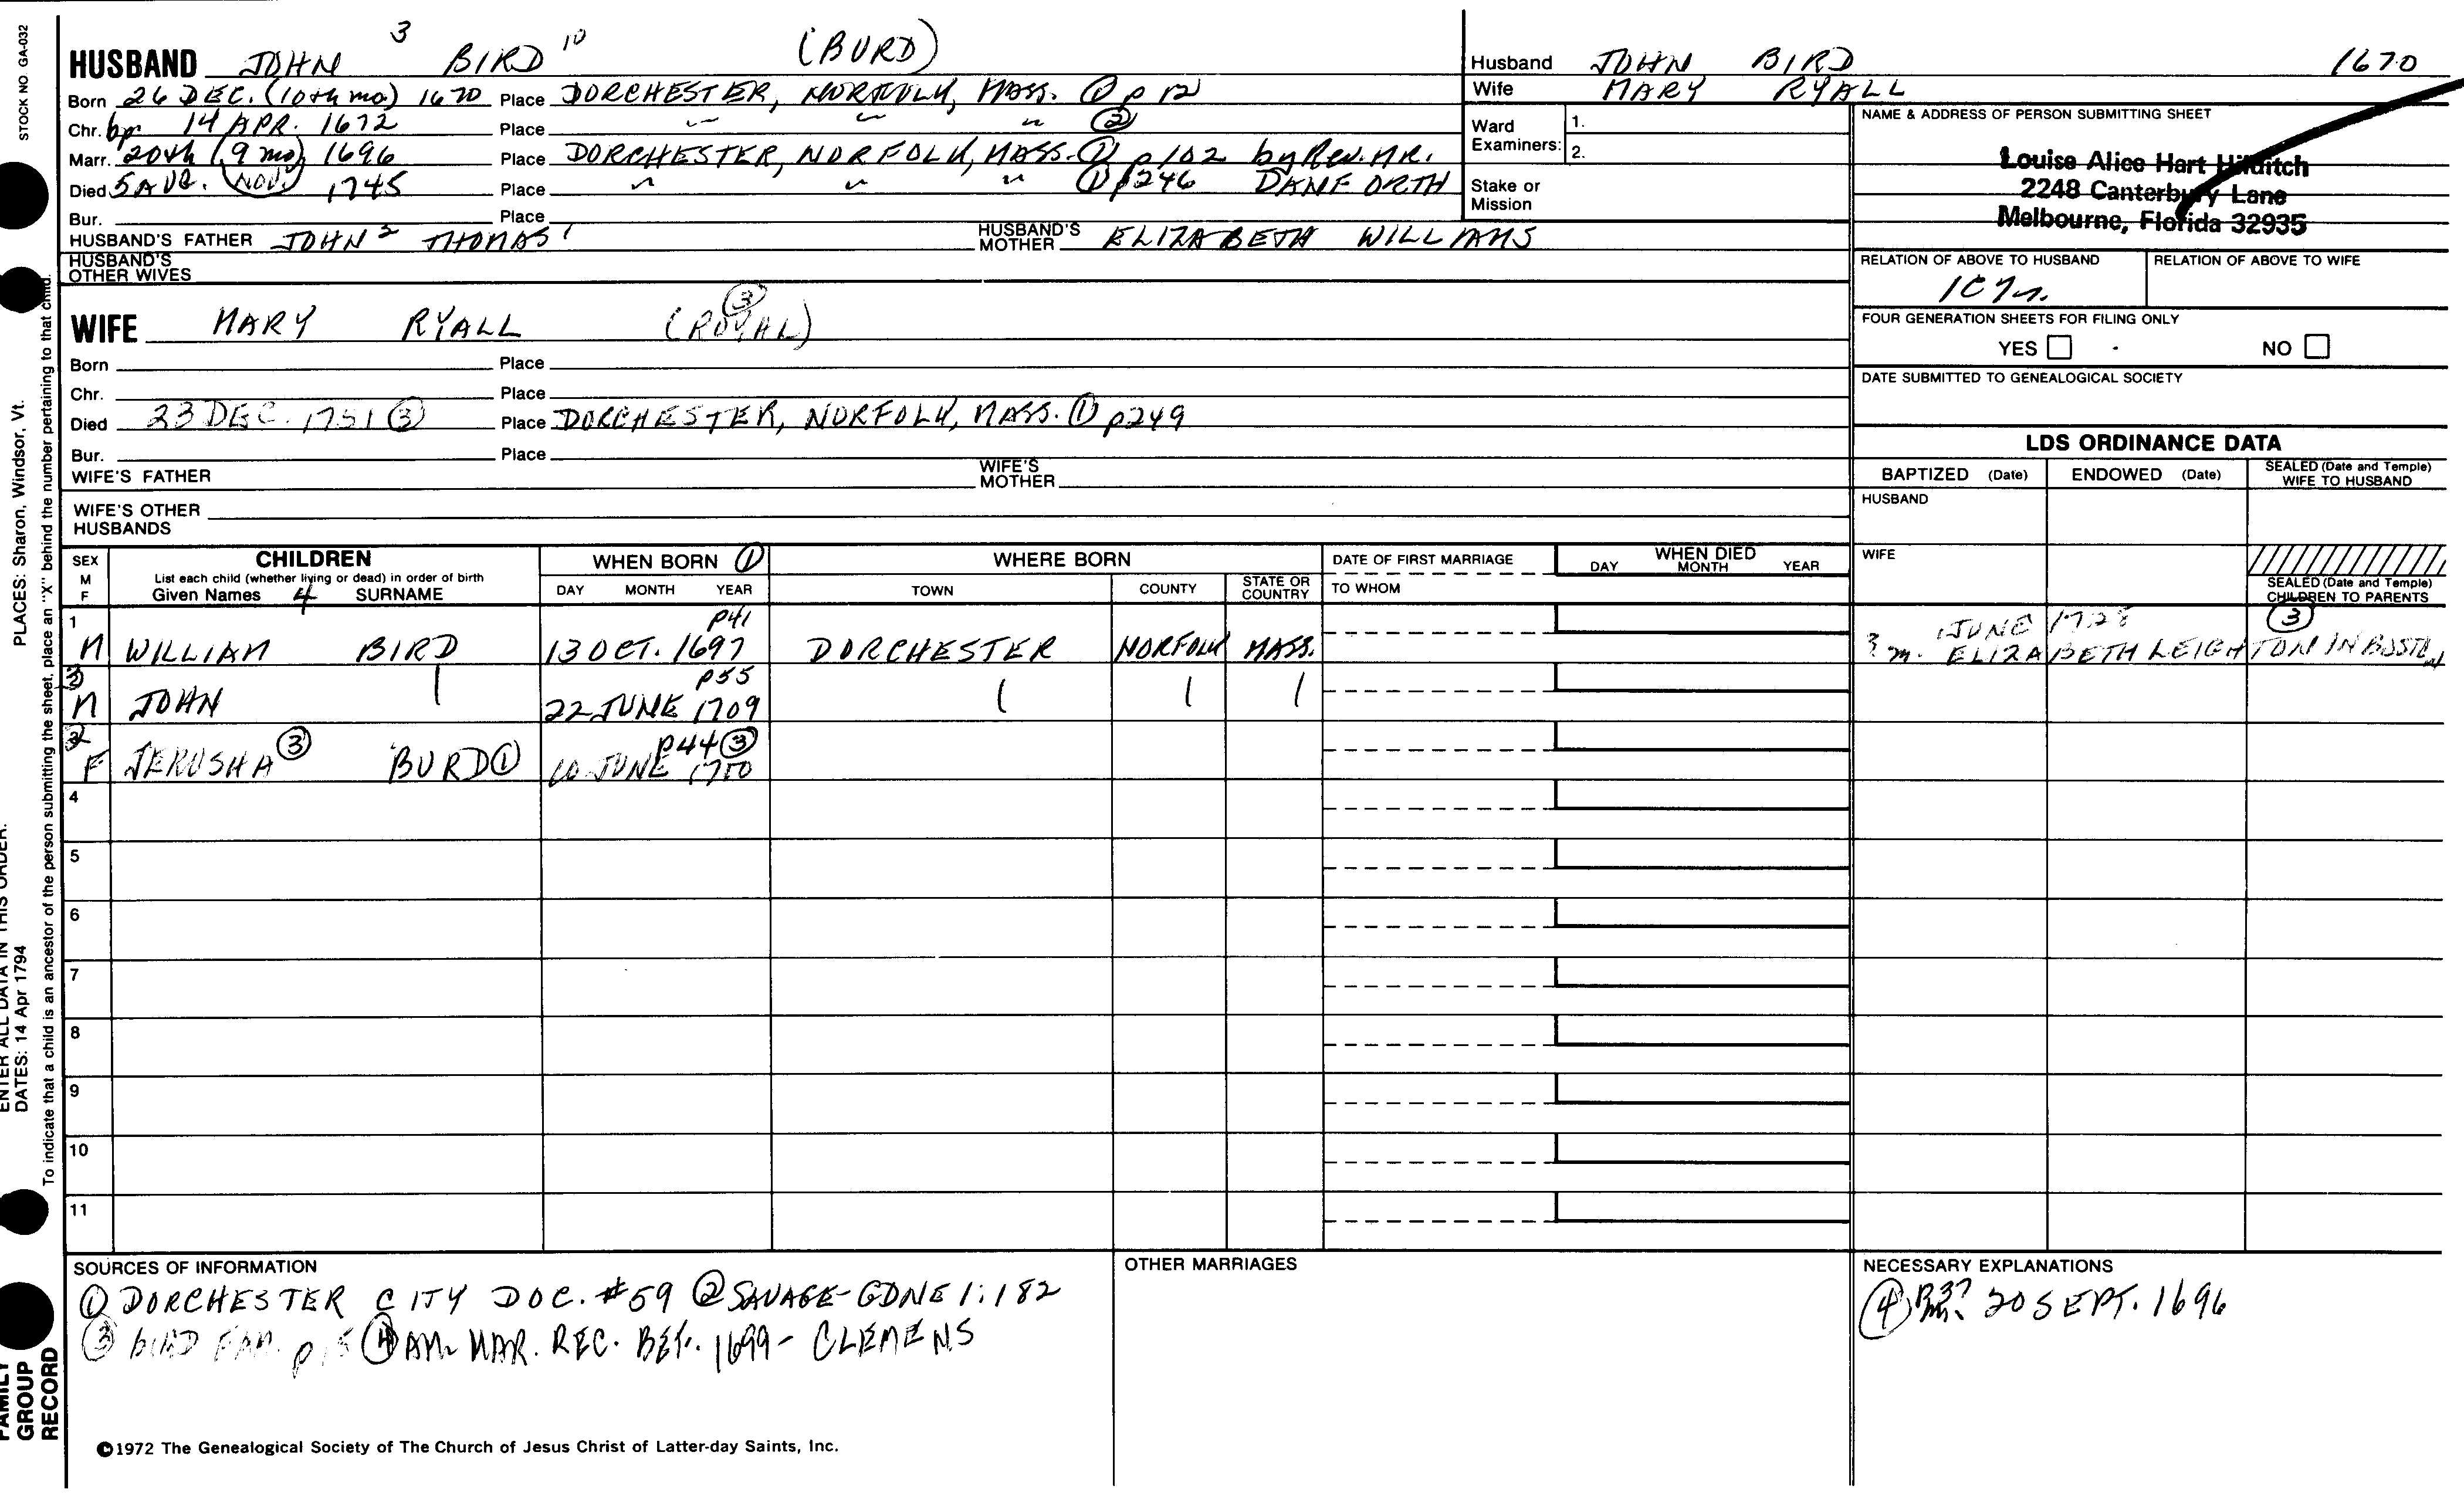 STOCK NO GA-032
HUSBAND JOHN 3 BIRD 10 (BURD)
Born 26 DEC. (10th mo.) 1670 Place DORCHESTER, NORFOLK, MASS. ① p 12
Chr. bp. 14 APR. 1672 Place " " " ②
Marr. 20th (9 mo) 1696 Place DORCHESTER, NORFOLK, MASS. ① p 102 by Rev. MR.
Died 5 AUG. (NOV.) 1745 Place " " " ① p 246 DANFORTH
Bur. Place
HUSBAND'S FATHER JOHN 2 THOMAS 1 HUSBAND'S MOTHER ELIZABETH WILLIAMS
HUSBAND'S OTHER WIVES
Husband JOHN BIRD 1670
Wife MARY RYALL
Ward Examiners: 1.
2.
Stake or Mission
NAME & ADDRESS OF PERSON SUBMITTING SHEET
Louise Alice Hart
2248 Canterbury Lane
Melbourne, Florida 32935
RELATION OF ABOVE TO HUSBAND RELATION OF ABOVE TO WIFE
FOUR GENERATION SHEETS FOR FILING ONLY
YES NO
DATE SUBMITTED TO GENEALOGICAL SOCIETY
WIFE MARY RYALL (ROYAL) ③
Born Place
Chr. Place
Died 23 DEC. 1751 ③ Place DORCHESTER, NORFOLK, MASS. ① p249
Bur. Place
WIFE'S FATHER WIFE'S MOTHER
WIFE'S OTHER HUSBANDS
LDS ORDINANCE DATA
BAPTIZED (Date) ENDOWED (Date) SEALED (Date and Temple) WIFE TO HUSBAND
HUSBAND
WIFE
SEALED (Date and Temple) CHILDREN TO PARENTS
SEX M F
CHILDREN
List each child (whether living or dead) in order of birth
Given Names 4 SURNAME
WHEN BORN ①
DAY MONTH YEAR
WHERE BORN
TOWN COUNTY STATE OR COUNTRY
DATE OF FIRST MARRIAGE
TO WHOM
WHEN DIED
DAY MONTH YEAR
1 M WILLIAM BIRD 13 OCT. 1697 p41 DORCHESTER NORFOLK MASS.
JUNE 1728 ③
? m. ELIZABETH LEIGHTON IN
3 M JOHN 22 JUNE 1709 p55
2 F JERUSHA ③ BURD ① 10 JUNE p44 ③
4
5
6
7
8
9
10
11
SOURCES OF INFORMATION
① DORCHESTER CITY DOC. #59 ② SAVAGE-GDNE 1:182
③ BIRD FAM. ④ AM. MAR. REC. BEF. 1699 - CLEMENS
OTHER MARRIAGES
NECESSARY EXPLANATIONS
④ 20 SEPT. 1696
©1972 The Genealogical Society of The Church of Jesus Christ of Latter-day Saints, Inc.
PLACES: Sharon, Windsor, Vt.
ENTER ALL DATA IN THIS ORDER:
DATES: 14 Apr 1794
To indicate that a child is an ancestor of the person submitting the sheet, place an "X" behind the number pertaining to that child.
FAMILY
GROUP
RECORD